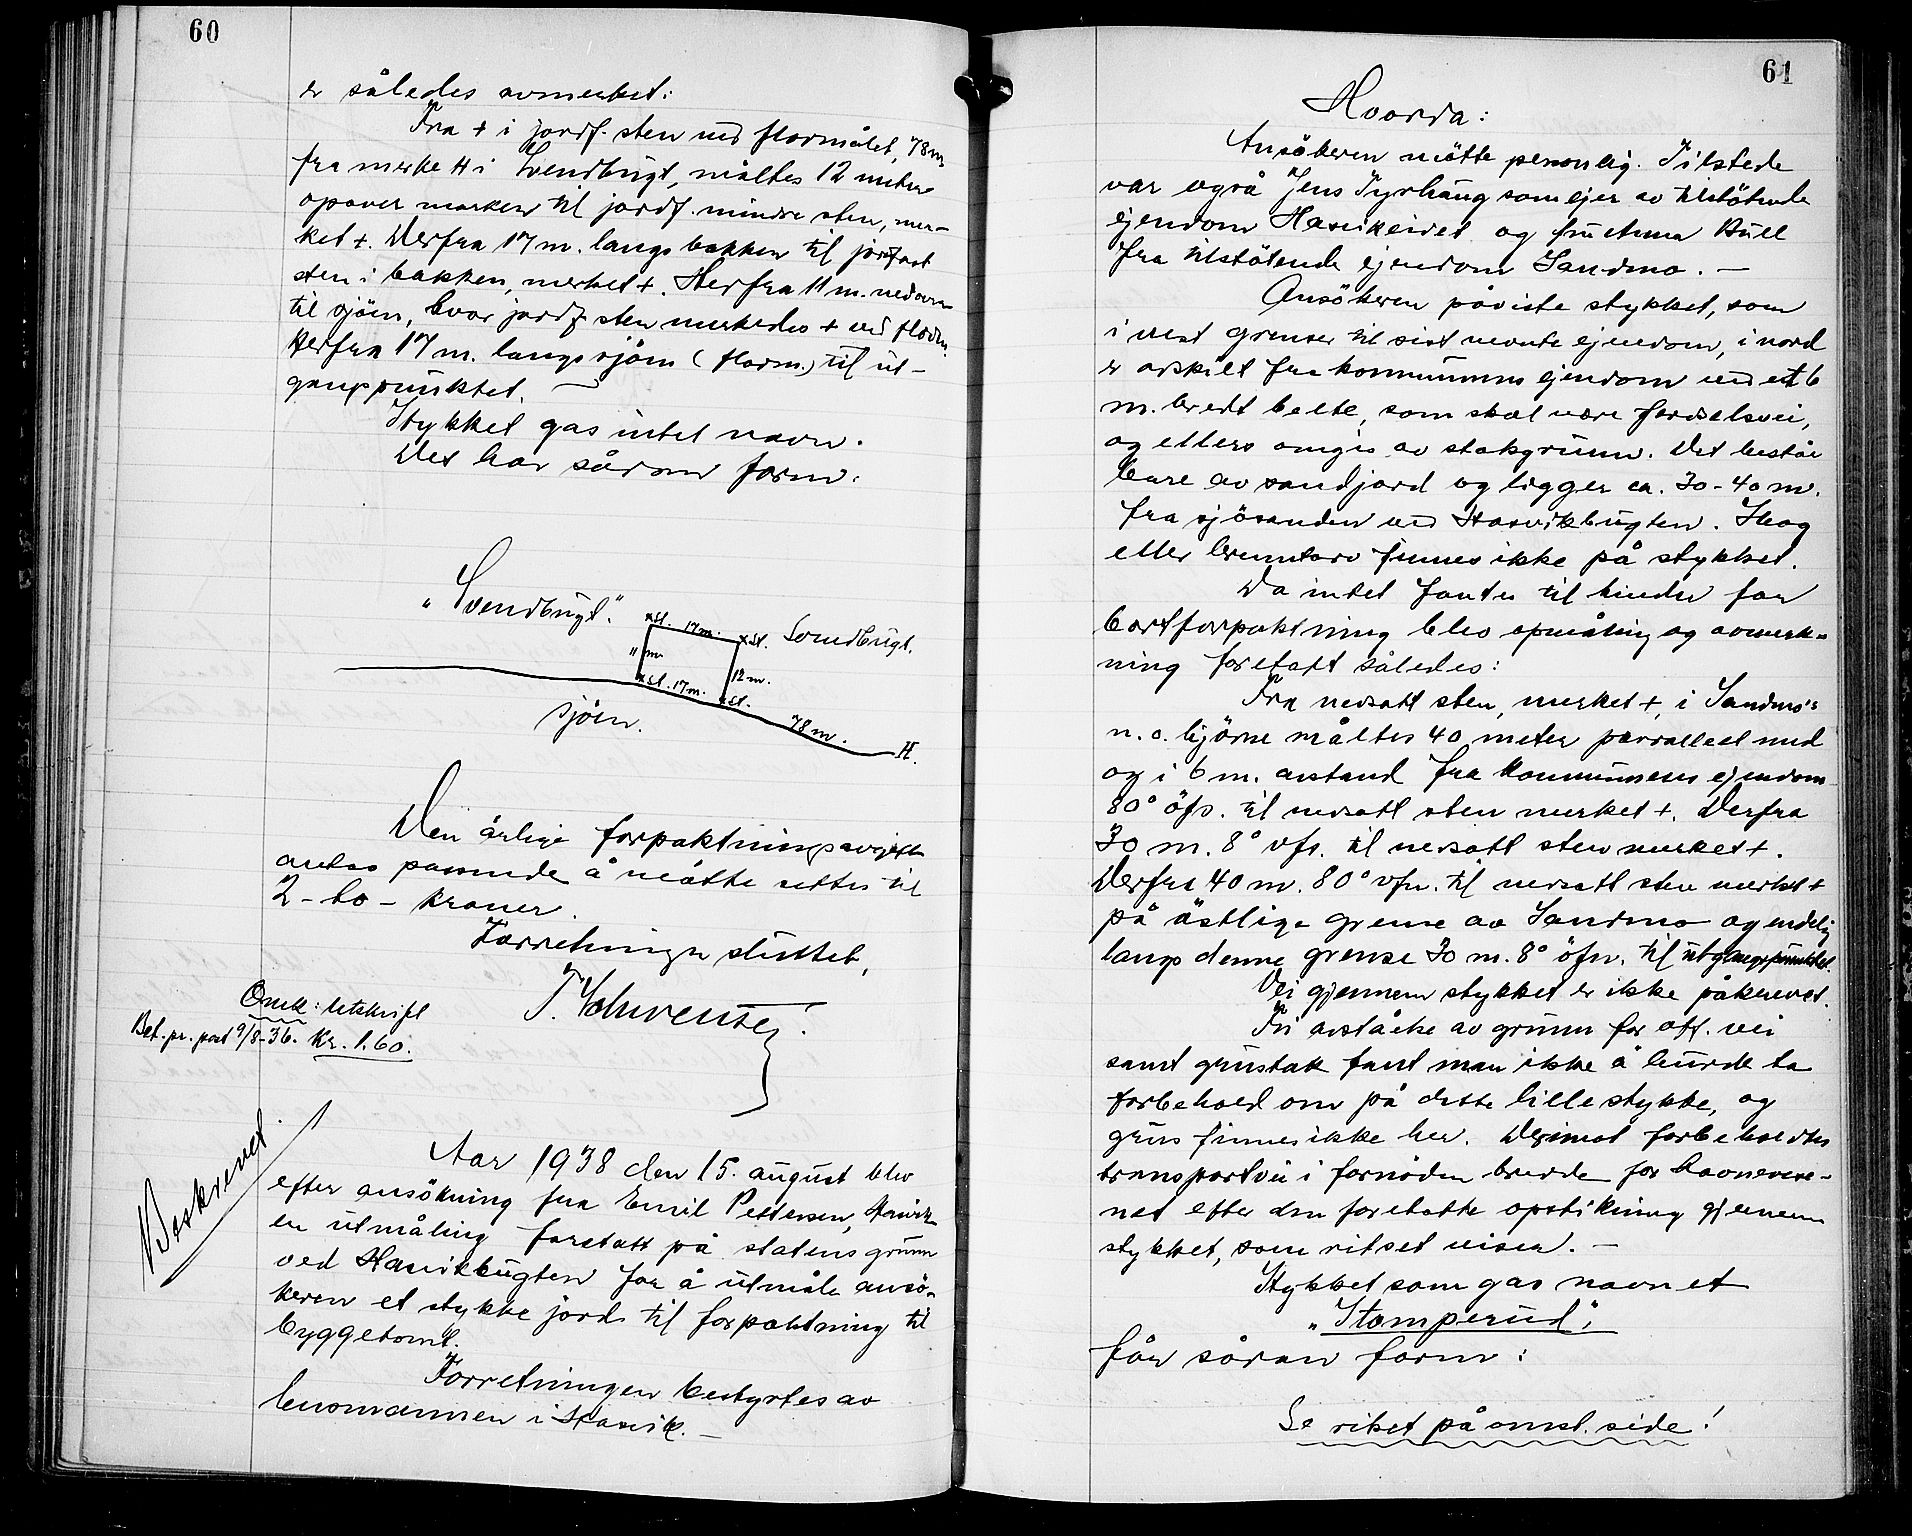 60
er således avmerket:
Fra + i jordf. sten ved flormålet, 78 m
fra merke H i Svendbugt, måltes 12 meter
opover marken til jordf. mindre sten, mer-
ket +. Derfra 17 m. langs bakken til jordfast
sten i bakken, merket +. Herfra 11 m. nedover
til sjöen, hvor jordf. sten merkedes + ved flodm.
Herfra 17 m. langs sjöen (flodm.) til ut-
gangspunktet. —
Stykket gas intet navn.
Det har sådan form:
"Svendbugt."
x st. 17 m. x st. Svendbugt.
11 m. 12 m.
x st. 17 m. x st.
sjöen. 78 m. H.
Den årlige forpaktningsavgift
antas passende å måtte settes til
2 - to - kroner.
Forretningen sluttet.
Omk: Utskrift
Bet. pr. post 9/8-36. Kr. 1.60.
Beskrevet.
Aar 1938 den 15. august blev
efter ansökning fra Emil Pettersen, Hasvik
en utmåling foretatt på statens grunn
ved Hasvikbugten for å utmåle ansö-
keren et stykke jord til forpaktning til
byggetomt.
Forretningen bestyrtes av
lensmannen i Hasvik. —
61
Hvorda:
Ansökeren mötte personlig. Tilstede
var også Jens Tyrhaug som ejer av tilstötende
ejendom Hasvikeidet og fru Anna Bull
fra tilstötende ejendom Sandmo. —
Ansökeren påviste stykket, som
i vest grenser til sist nevnte ejendom, i nord
er avskilt fra kommunens ejendom ved et 6
m. bredt belte, som skal være ferdselsvei,
og ellers omgis av statsgrunn. Det består
bare av sandjord og ligger ca. 30 - 40 m.
fra sjösanden ved Hasvikbugten. Skog
eller brenntorv finnes ikke på stykket.
Da intet fantes til hinder for
bortforpaktning blev opmåling og avmerk-
ning foretatt således:
Fra nedsatt sten, merket +, i Sandmo's
n. ö. hjörne måltes 40 meter parallelt med
og i 6 m. avstand fra kommunenes ejendom
80° öfs. til nedsatt sten merket +. Derfra
30 m. 8° vfs. til nedsatt sten merket +.
Derfra 40 m. 80° vfn. til nedsatt sten merket +
på östlige grense av Sandmo og endelig
langs denne grense 30 m. 8° öfn. til utgangspunktet.
Vei gjennem stykket er ikke påkrevet.
Fri avståelse av grunn for off. vei
samt grustak fant man ikke å burde ta
forbehold om på dette lille stykke, og
grus finnes ikke her. Derimot forbeholdtes
transportvei i fornöden bredde for havnevese-
net efter den foretatte opstikning gjennem
stykket, som ritset viser. —
Stykket som gas navnet
"Stamperud",
får sådan form:
Se ritset på omst. side!